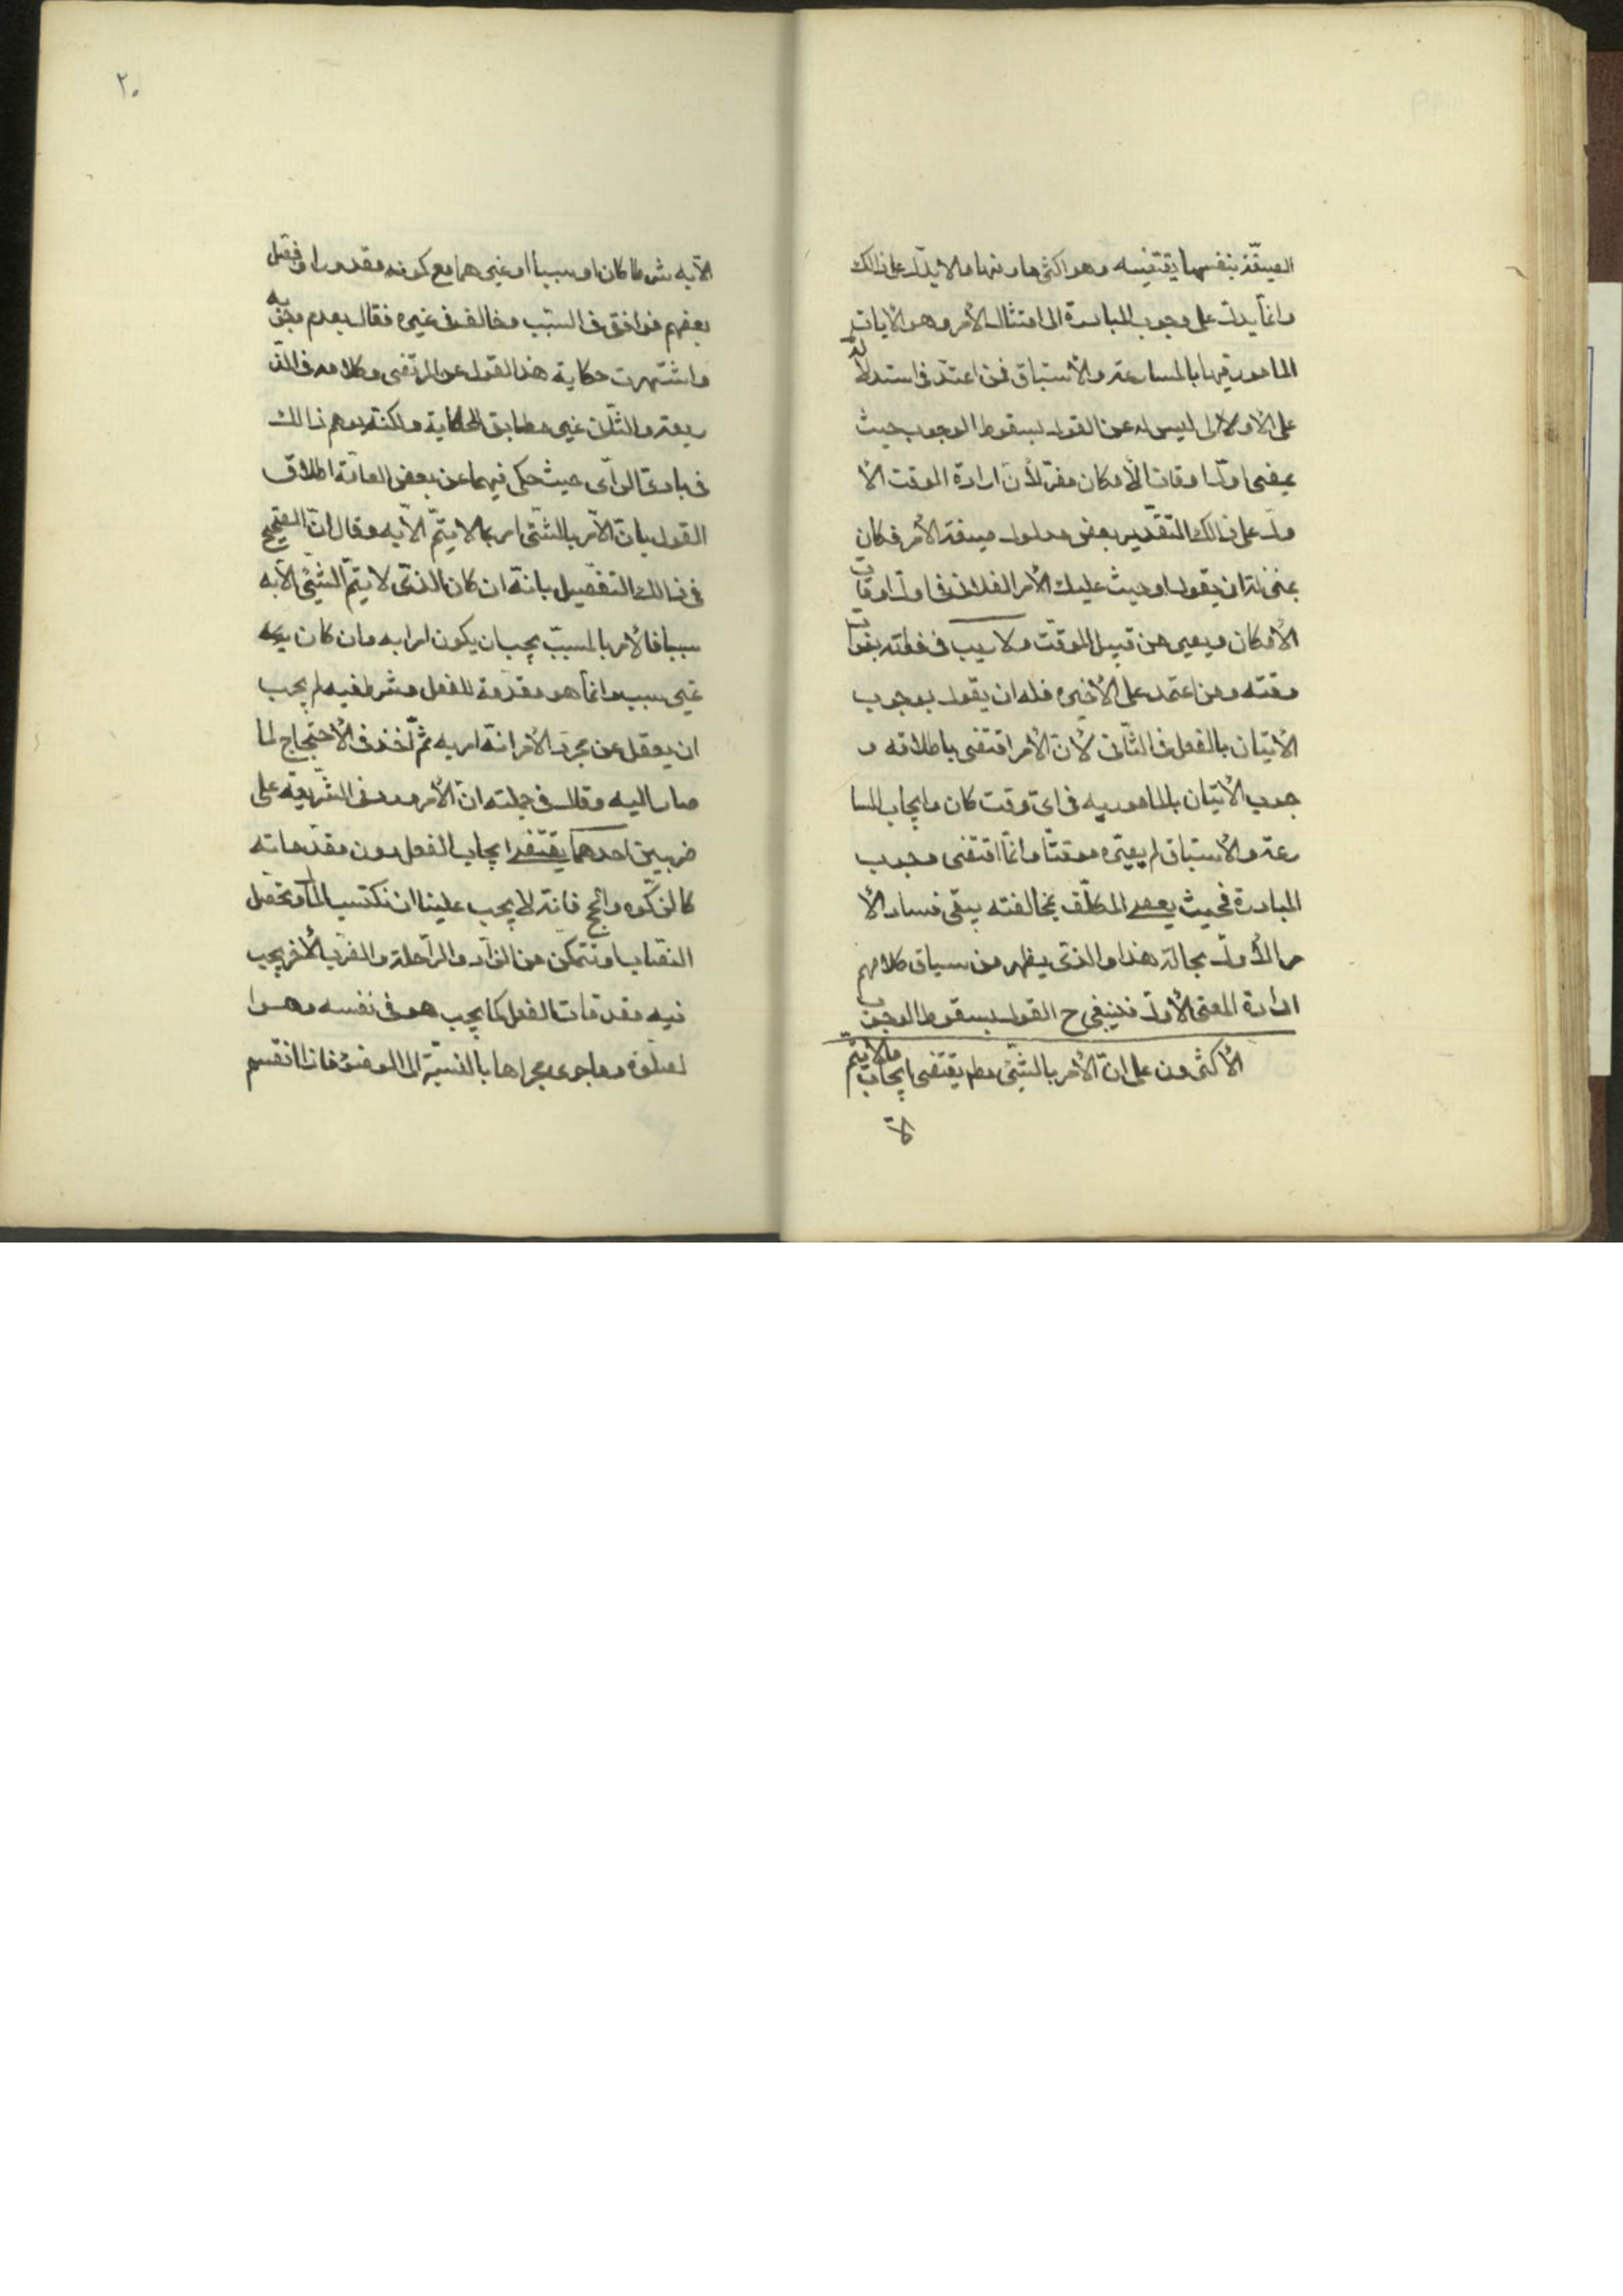 الصيغة بنفسها يقتضيه وهو اكثرها ومنها ما لا يدل على ذالك
وانما يدل على وجوب المبادرة الى امتثال الامر وهو الايات
المامور فيها بالمسارعة والاستباق فمن اعتمد في استدلاله
على الاولى ليس له عن القول بسقوط الوجوب حيث
يمضى اول اوقات الامكان مفر لان ارادة الوقت الا
ول على ذالك التقدير بعض مدلول صيغة الامر فكان
بمنزلة ان يقول اوجبت عليك الامر الفلانى فى اول اوقات
الامكان ويصير من قبيل الموقت ولا ريب فى فواته بفوات
وقته ومن اعتمد على الاخيرة فله ان يقول بوجوب
الاتيان بالفعل فى الثانى لان الامر اقتضى باطلاقه و
جوب الاتيان بالمامور به فى اى وقت كان وايجاب المسا
رعة والاستباق لم يصيره موقتا وانما اقتضى وجوب
المبادرة فحيث يعصى المكلف بمخالفته يبقى مفاد الا
مر الاول بحاله هذا والذى يظهر من سياق كلامهم
ارادة المعنى الاول فينبغى ح القول بسقوط الوجوب
الاكثرون على ان الامر بالشيئ مطم يقتضى ايجاب ما لا يتم
الا
٢٠
الا به شرطا كان او سببا او غيرهما مع كونه مقدورا وفصل
بعضهم فوافق فى السبب وخالف فى غيره فقال بعدم وجوبه
واشتهرت حكاية هذا القول عن المرتضى وكلامه فى الذ
ريعة والشافى غير مطابق للحكاية ولكنه يوهم ذالك
فى بادى الراى حيث حكى فيهما عن بعض العامة اطلاق
القول بان الامر بالشئ امر بما لا يتم الا به وقال ان الصحيح
فى ذالك التفصيل بانه ان كان الذى لا يتم الشيئ الا به
سببا فالامر بالمسبب يجب ان يكون امرا به وان كان
غير سبب وانما هو مقدمة للفعل وشرط فيه لم يجب
ان يعقل من مجرد الامر انه امر به ثم اخذ فى الاحتجاج لما
صار اليه وقال فى جملته ان الامر ورد فى الشريعة على
ضربين احدهما يقتضى ايجاب الفعل دون مقدماته
كالزكوه والحج فانه لا يجب علينا ان نكتسب المال ونحصل
النصاب او نتمكن من الزاد والراحلة والضرب الاخر يجب
فيه مقدمات الفعل كما يجب هو فى نفسه وهو ا
لصلوة وما جرى مجراها بالنسبة الى الوضوء فاذا انقسم